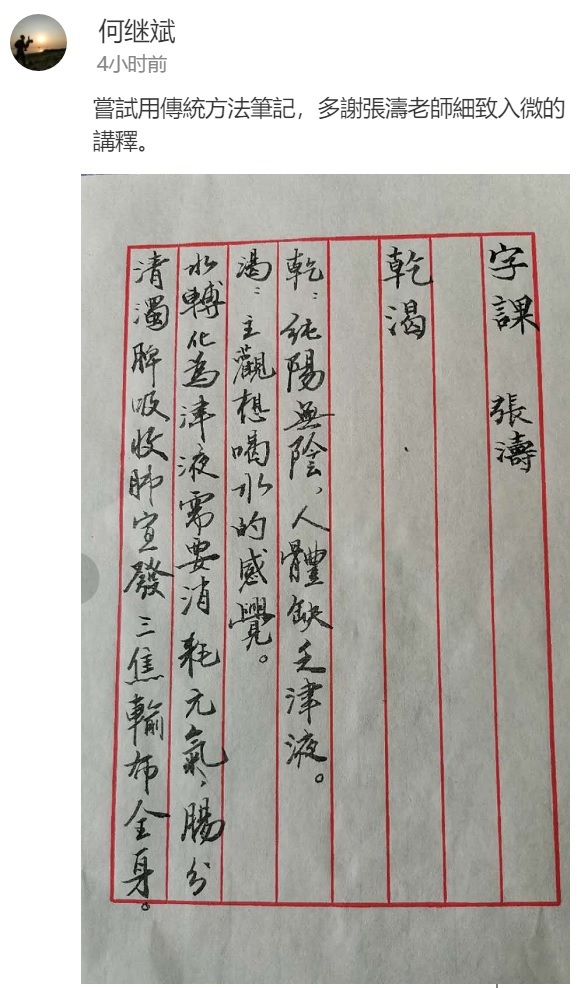 何继斌
4小时前
嘗試用傳統方法筆記，多謝張濤老師細致入微的
講釋。
字課 張濤
乾渴
乾：純陽無陰，人體缺乏津液。
渴：主觀想喝水的感覺。
水轉化為津液需要消耗元氣，腸分
清濁脾吸收肺宣發三焦輸布全身。